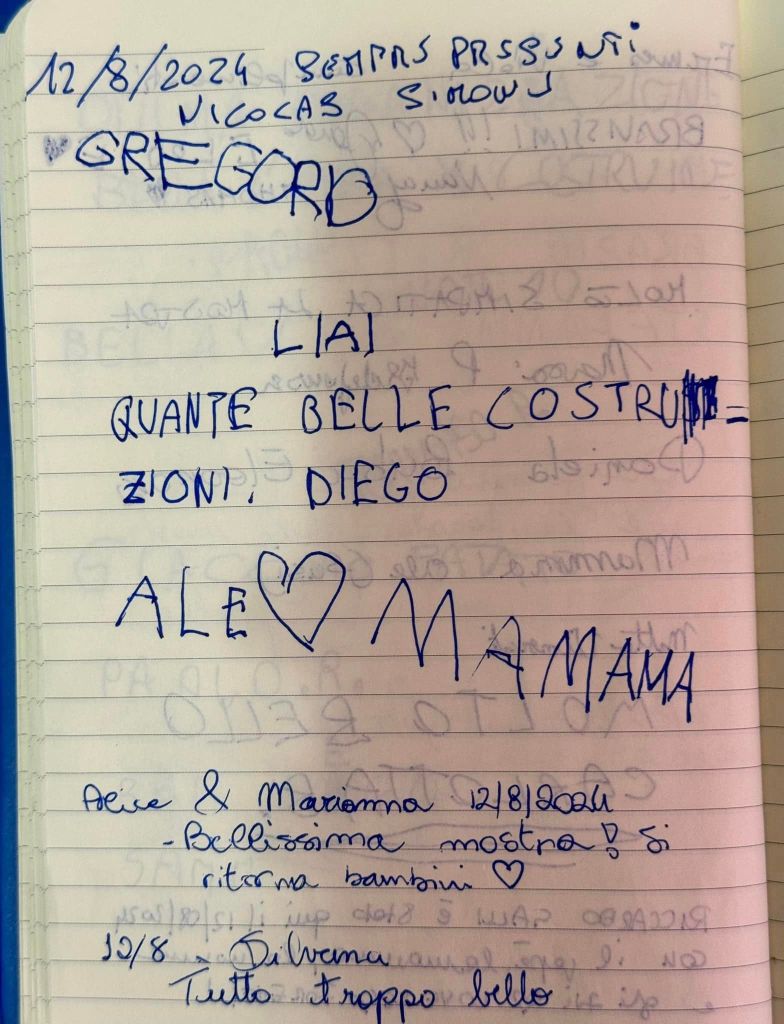 12/8/2024 SEMPRS PRSSSNTi
NICOLAS SIMONS
GREGORIO
LIAI
QUANTE BELLE COSTRU=
ZIONI. DIEGO
ALE ♡ MAMAMA
Alice & Marianna 12/8/2024
- Bellissima mostra! Si
ritorna bambini ♡
12/8 - Silvana
Tutto troppo bello